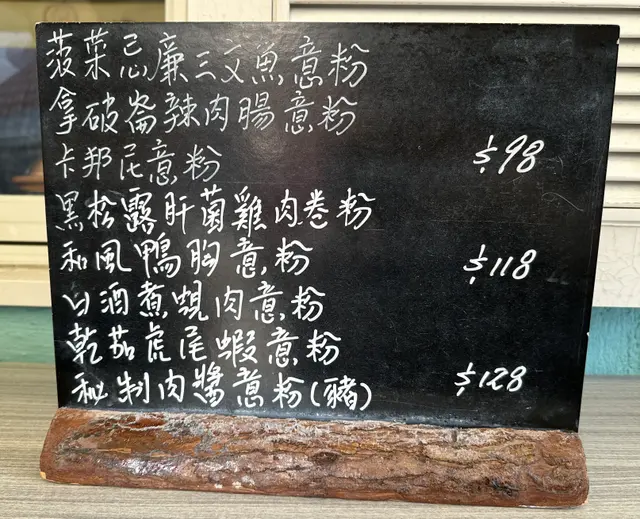 菠菜忌廉三文魚意粉
拿破崙辣肉腸意粉
卡邦尼意粉 $98
黑松露肝菌雞肉卷粉
和風鴨胸意粉 $118
白酒煮蜆肉意粉
乾茄虎尾蝦意粉
秘制肉醬意粉(豬) $128